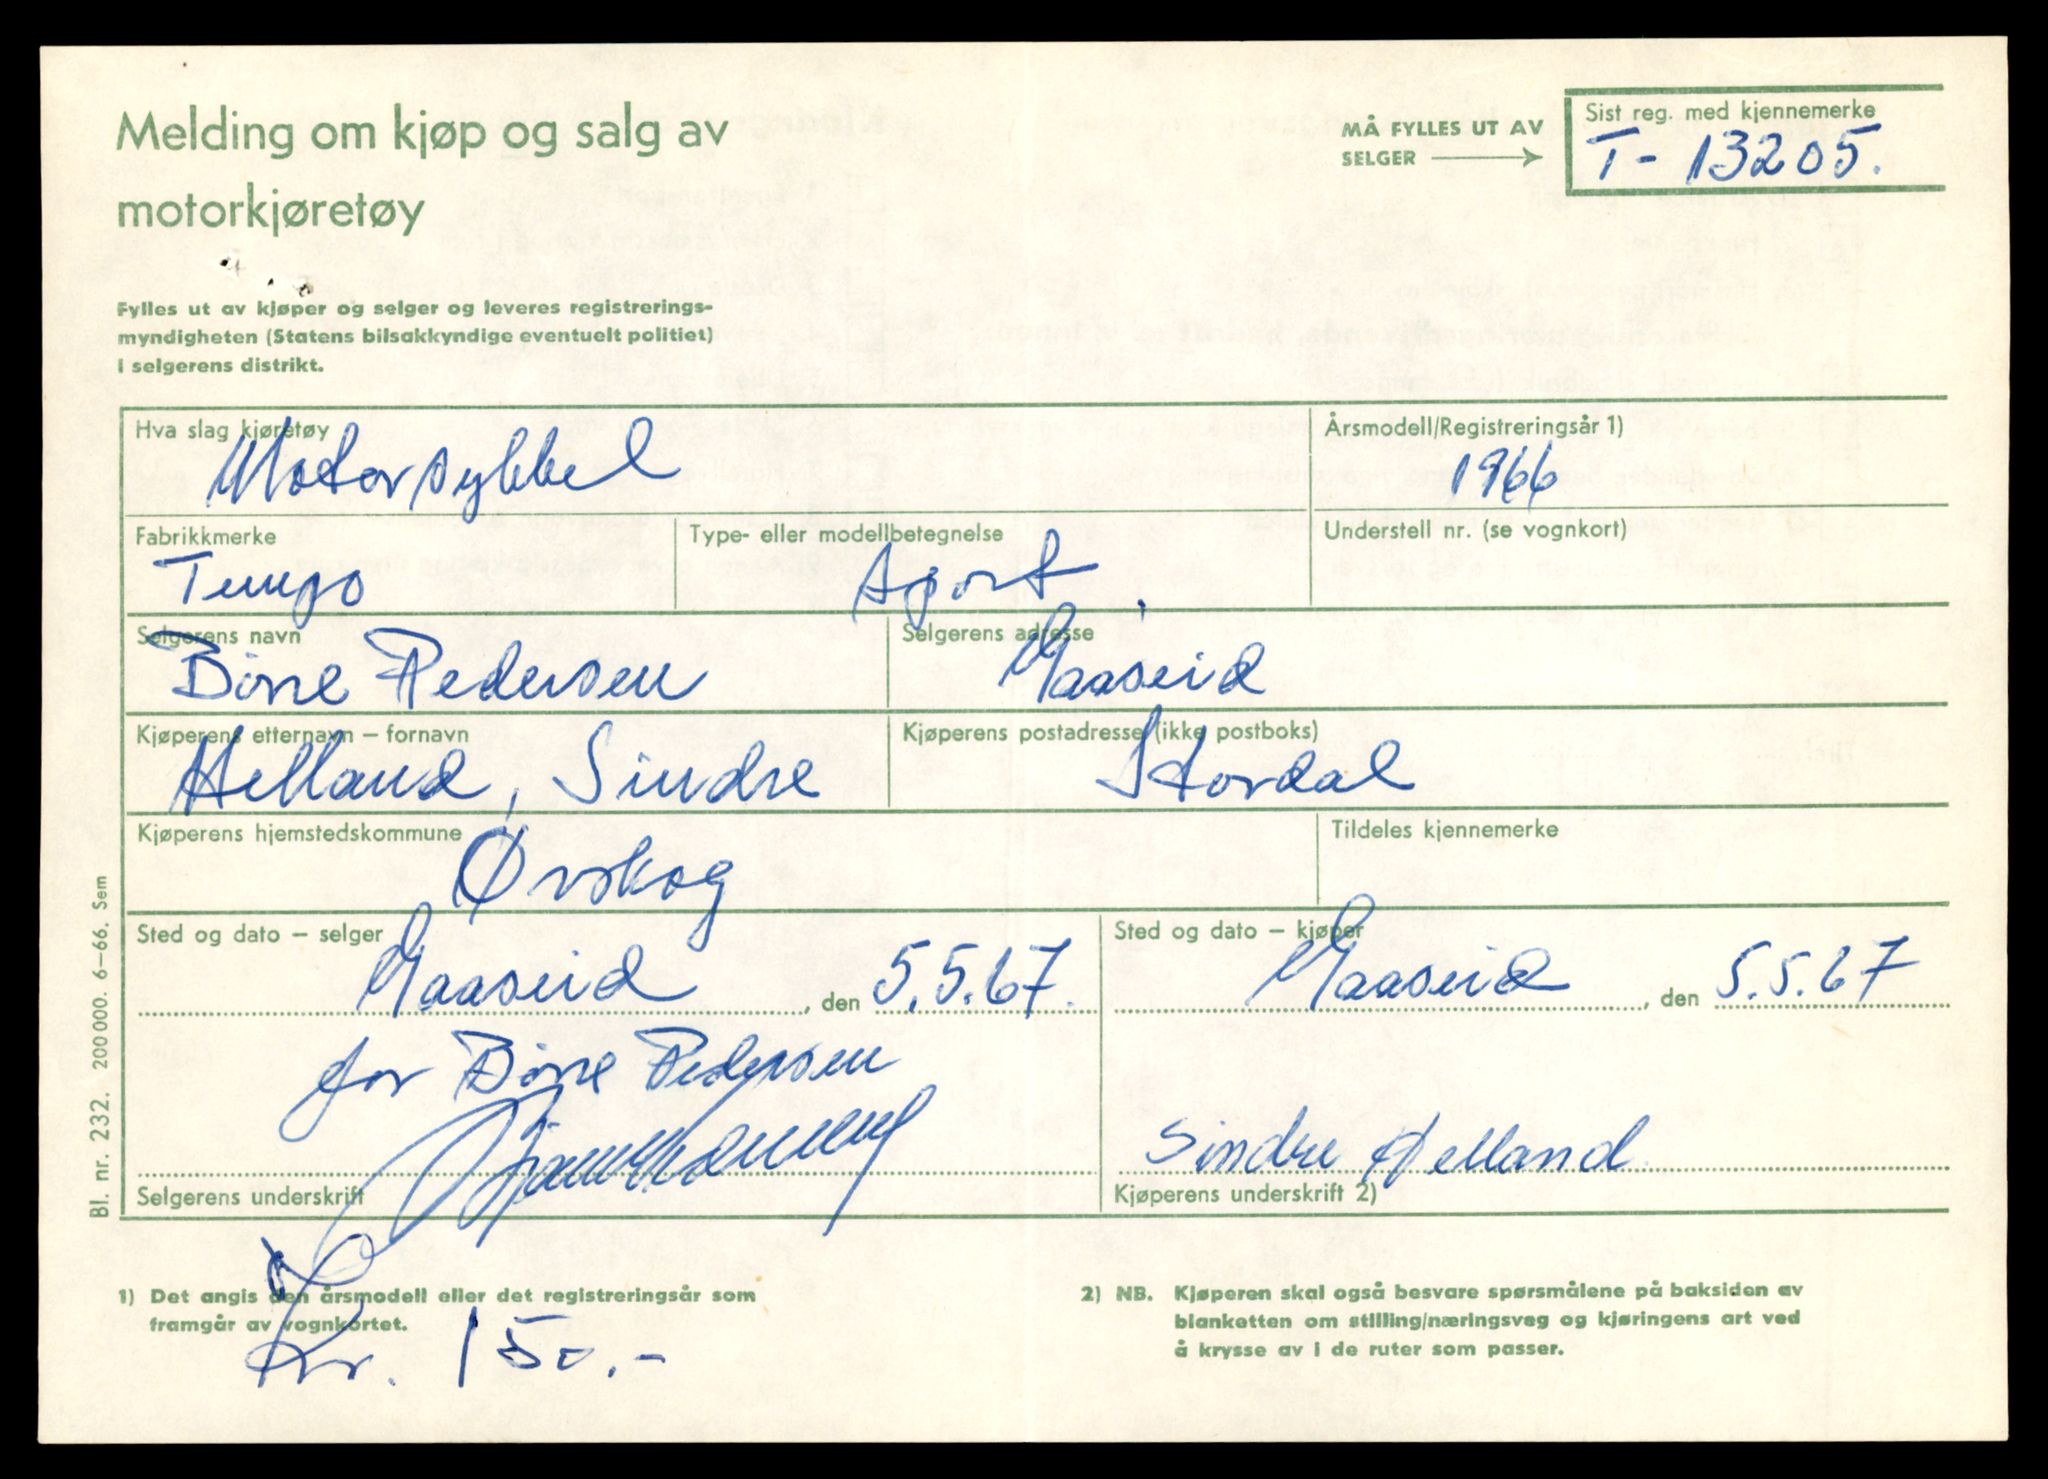 Melding om kjøp og salg av
motorkjøretøy
MÅ FYLLES UT AV
SELGER
Sist reg. med kjennemerke
T- 13205.
Fylles ut av kjøper og selger og leveres registrerings-
myndigheten (Statens bilsakkyndige eventuelt politiet)
i selgerens distrikt.
Hva slag kjøretøy
Motorsykkel
Årsmodell/Registreringsår 1)
1966
Fabrikkmerke
Tempo
Type- eller modellbetegnelse
Sport
Understell nr. (se vognkort)
Selgerens navn
Børre Pedersen
Selgerens adresse
Maaseid
Kjøperens etternavn – fornavn
Helland, Sindre
Kjøperens postadresse (ikke postboks)
Stordal
Kjøperens hjemstedskommune
Ørskog
Tildeles kjennemerke
Sted og dato – selger
Maaseid, den 5.5.67.
Sted og dato – kjøper
Maaseid, den 5.5.67
for Børre Pedersen
Selgerens underskrift
Sindre Helland
Kjøperens underskrift 2)
Bl. nr. 232. 200 000. 6–66. Sem
1) Det angis den årsmodell eller det registreringsår som
framgår av vognkortet.
Kr. 150.-
2) NB. Kjøperen skal også besvare spørsmålene på baksiden av
blanketten om stilling/næringsveg og kjøringens art ved
å krysse av i de ruter som passer.